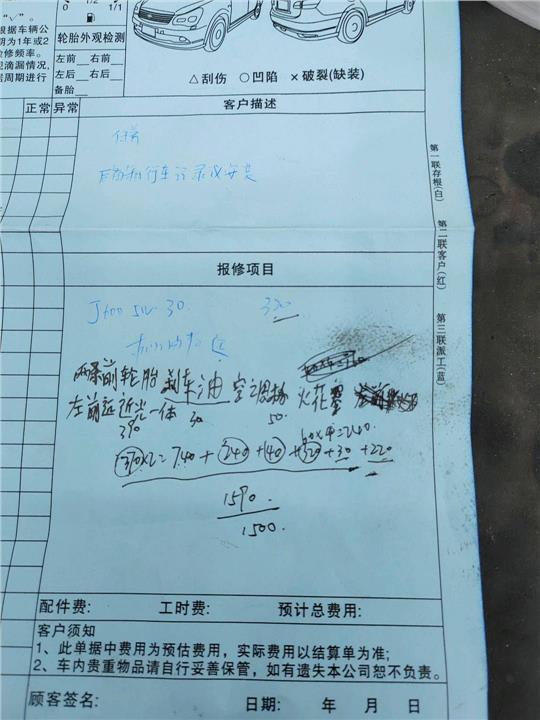 "√"。
0 1/2 1/1
根据车辆公
期为1年或2
修频率。
现滴漏情况,
居周期进行
轮胎外观检测
左前__右前__
左后__右后__
备胎__
△刮伤 ○凹陷 ×破裂(缺装)
正常 异常
客户描述
保养
行车记录仪安装
第一联存根(白)
第二联客户(红)
第三联派工(蓝)
报修项目
J600 5W 30. 320
两条前轮胎 刹车油 空调格 火花塞
左前远近光一体 30 50.
390 60×4=240.
370×2=740+240+40+320+30+220
1590.
1500.
配件费: 工时费: 预计总费用:
客户须知
1、此单据中费用为预估费用,实际费用以结算单为准;
2、车内贵重物品请自行妥善保管,如有遗失本公司恕不负责。
顾客签名: 日期: 年 月 日